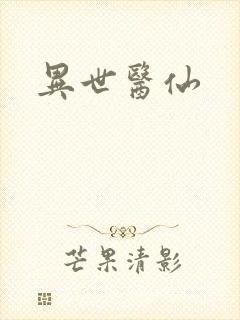 異世醫仙
芒果清影